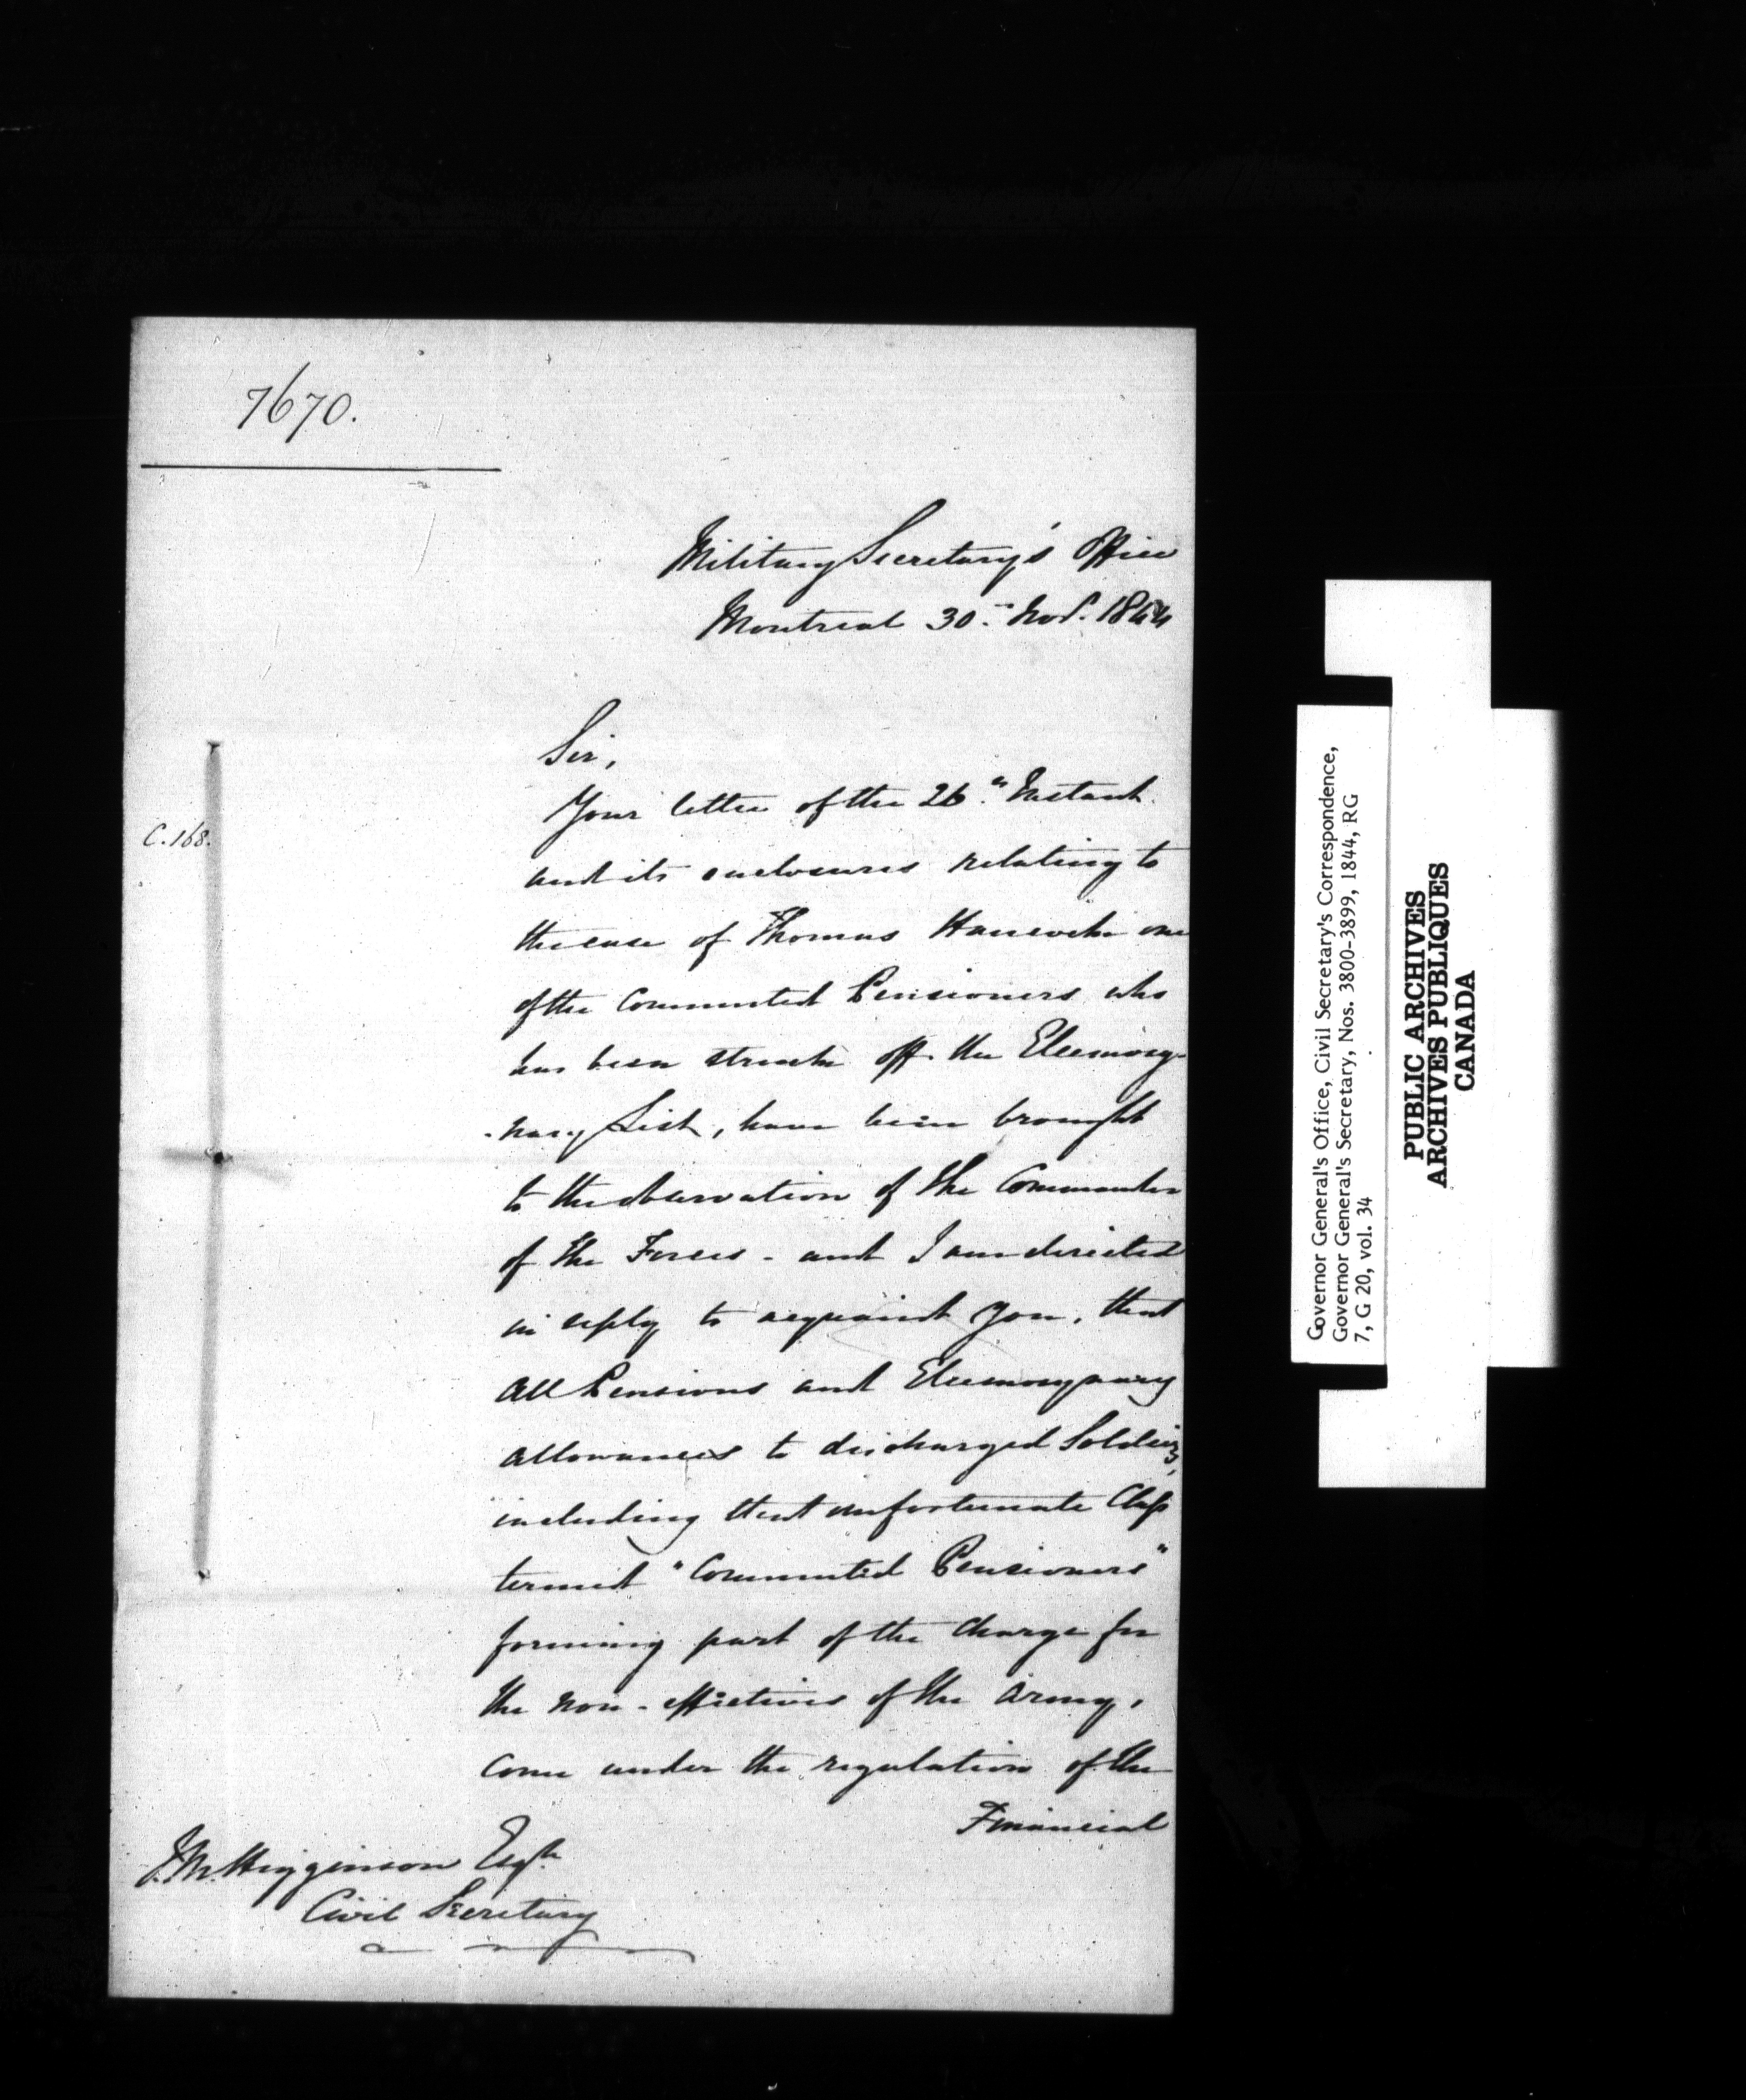 7670.
Military Secretary's Office
Montreal 30th Novr. 1844
Sir,
Your letter of the 26th Instant
and its enclosures relating to
C.168.
the case of Thomas one
of the Commuted Pensioners who
has been struck off the Eleemosy-
-nary List, have been brought
to the observation of the Commander
of the Forces - and I am directed
in reply to acquaint you, that
all Pensions and Eleemosynary
allowances to discharged Soldiers,
including that unfortunate Class
termed "Commuted Pensioners"
forming part of the Charge for
the non-effectives of the Army,
come under the regulation of the
Financial
J.M. Higginson Esqre.
Civil Secretary
Governor General's Office, Civil Secretary's Correspondence,
Governor General's Secretary, Nos. 3800-3899, 1844, RG
7, G 20, vol. 34
PUBLIC ARCHIVES
ARCHIVES PUBLIQUES
CANADA